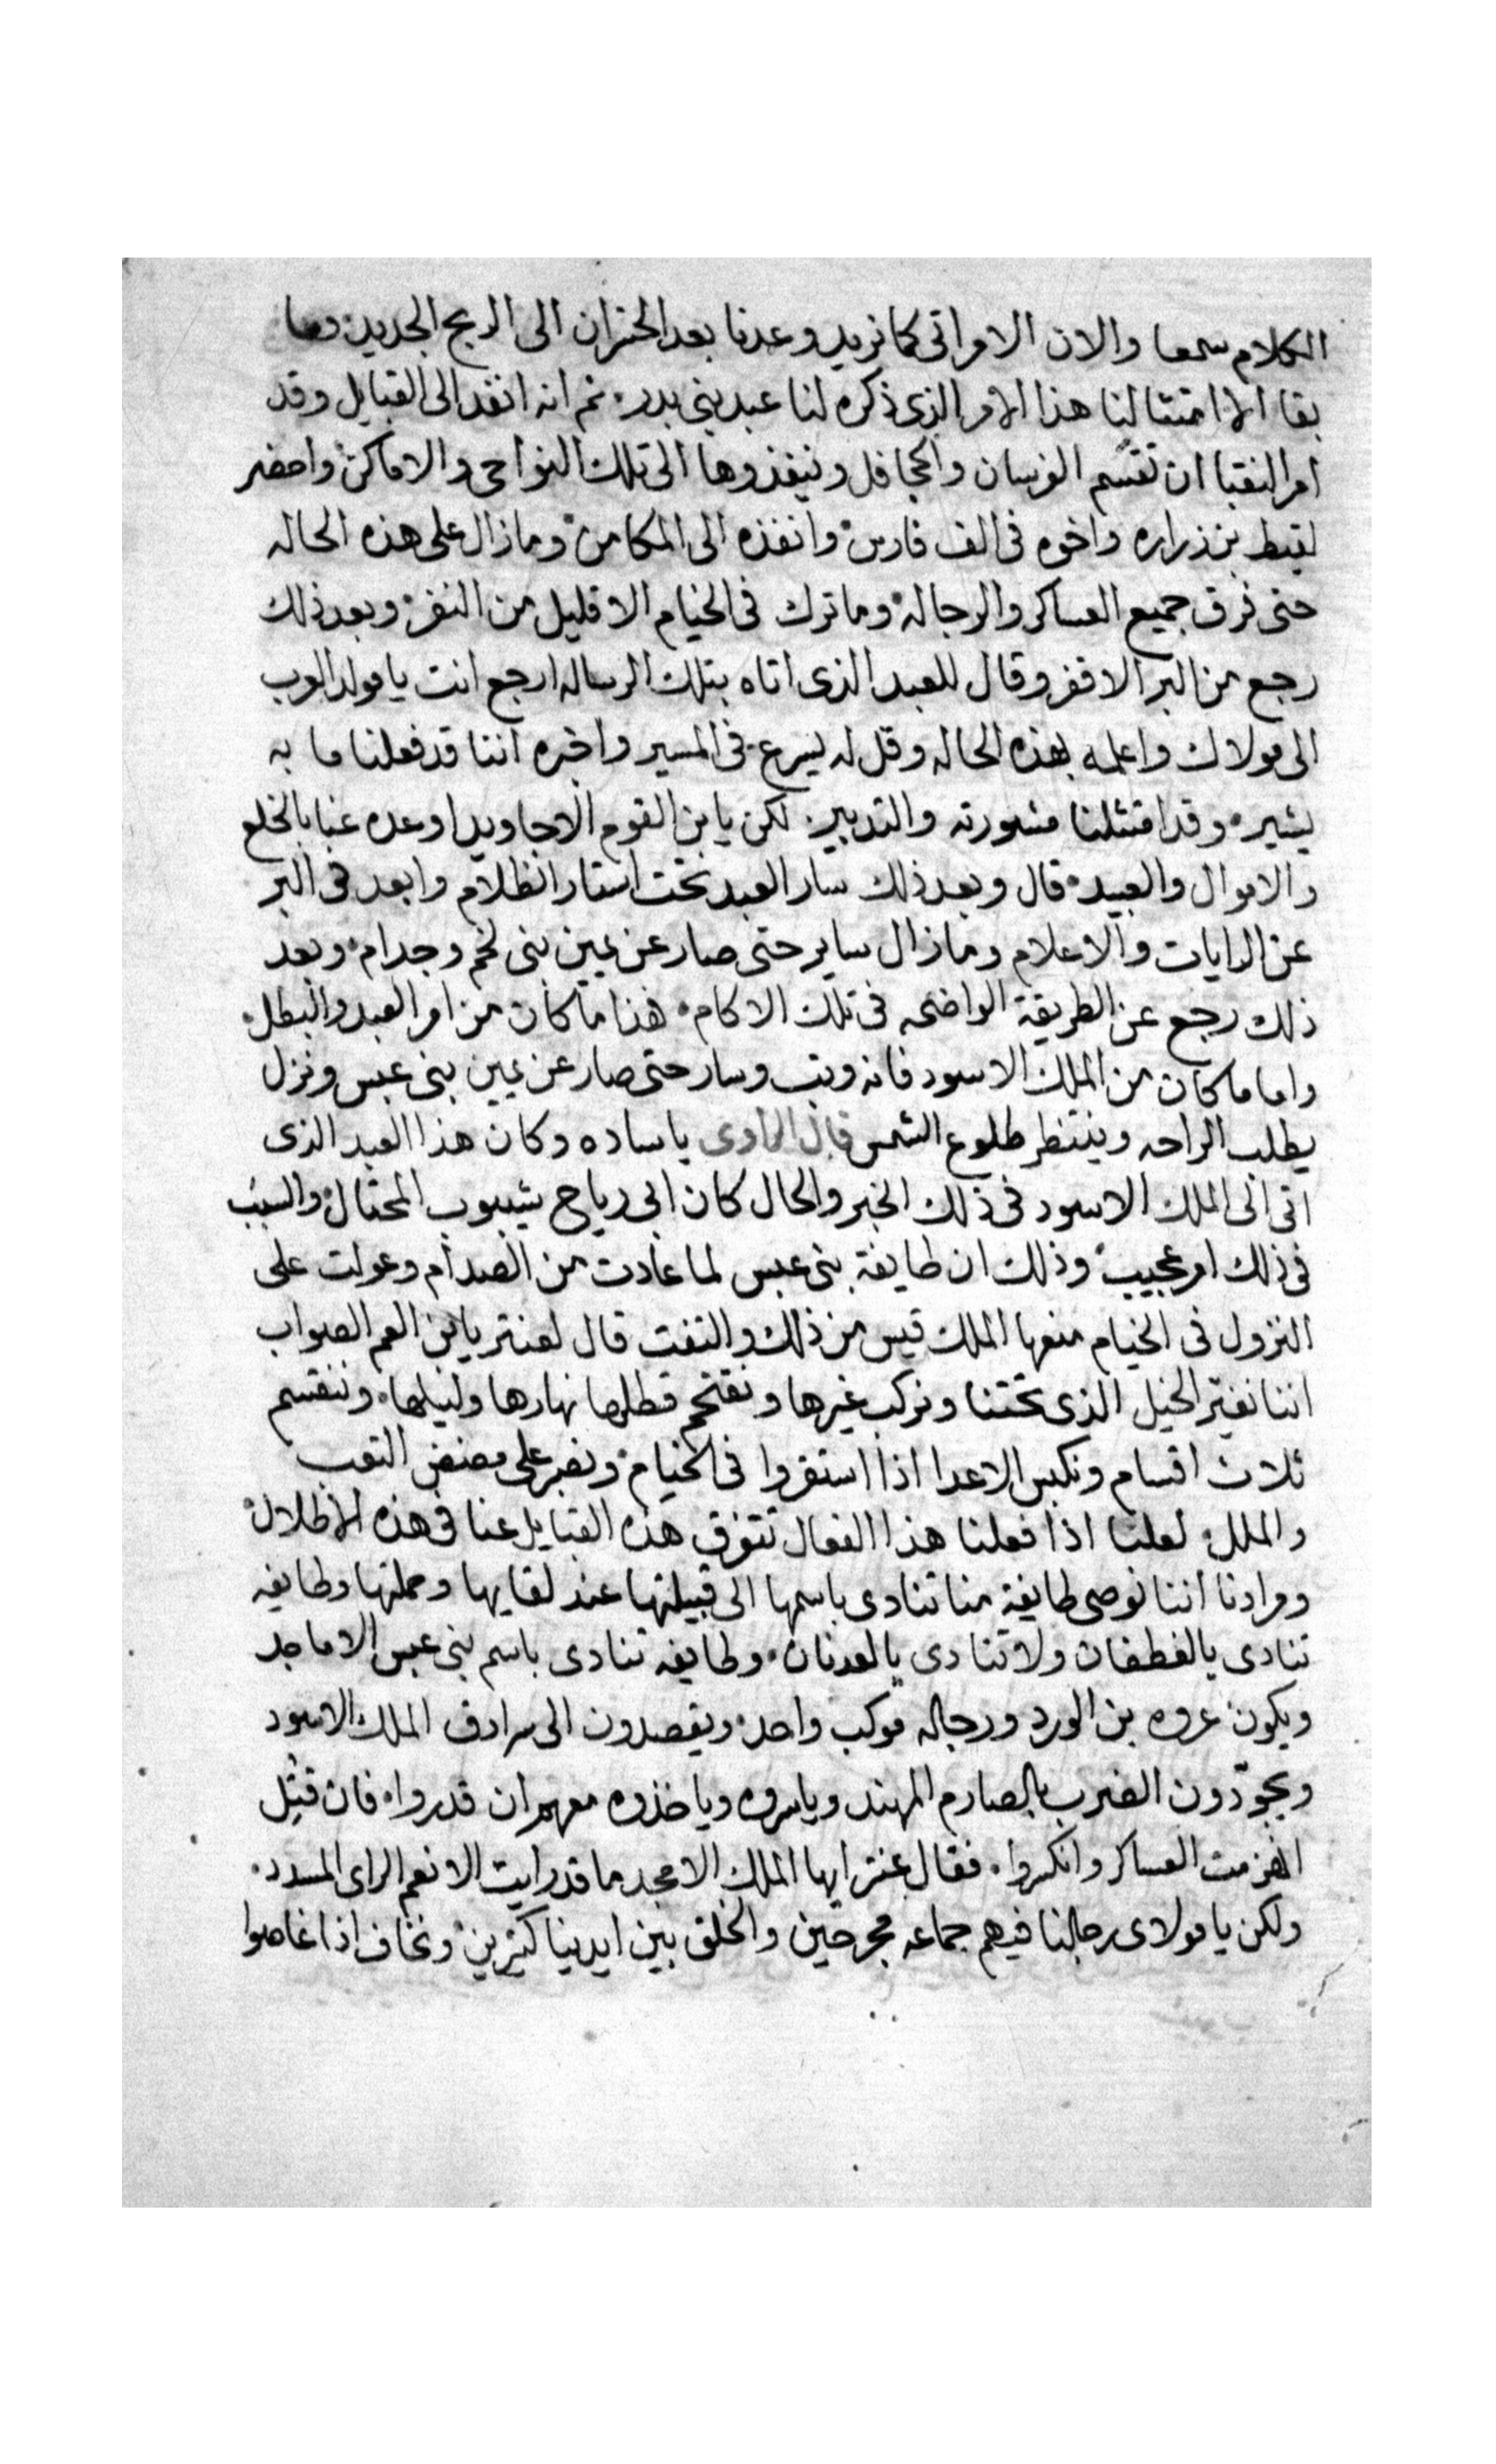 الكلام سمعا والان الامر اتى كما نريد وعدنا بعد الخسران الى الربح الجديد وما
بقا الا امتثالنا هذا الامر الذى ذكره لنا عبد بنى بدر ثم انه انفد الى القبايل وقد
امر النقبا ان تقسّم الفرسان والحجافل وينفذوها الى تلك النواحى والاماكن واحضر
لقيط بن زراره واخوه فى الف فارس وانفذه الى المكامن ومازال على هذه الحاله
حتى فرق جميع العساكر والرجاله وما ترك فى الخيام الا قليل من النفر وبعد ذلك
رجع من البر الاقفر وقال للعبد الذى اتاه بتلك الرساله ارجع انت يا مولد العرب
الى مولاك واعلمه بهذه الحاله وقل له يسرع فى المسير واخبره اننا قد فعلنا ما به
يشير وقد امتثلنا مشورته والتدبير لكن يا بن القوم الاجاويد اوعده عنا بالخلع
والاموال والعبيد قال وبعد ذلك سار العبد تحت استار الظلام وابعد فى البر
عن الرايات والاعلام ومازال ساير حتى صار عن يمين بنى لخم وجدام وبعد
ذلك رجع عن الطريقة الواضحه فى تلك الاكام هذا ما كان من امر العبد والبطل
واما ما كان من الملك الاسود فانه وتب وسار حتى صار عن يمين بنى عبس ونزل
يطلب الراحه وينتظر طلوع الشمس قال الراوى ياساده وكان هذا العبد الذى
اتى الى الملك الاسود فى ذلك الخبر والحال كان ابى رياح شيبوب المحتال والسبب
فى ذلك امر عجيب وذلك ان طايفة بنى عبس لما عادت من الصدام وعولت على
النزول فى الخيام منعها الملك قيس من ذلك والتفت قال لعنتر يابن العم الصواب
اننا نغير الخيل الذى تحتنا ونركب غيرها ونقتحم قطلرها نهارها وليلها وننقسم
ثلاث اقسام ونكبس الاعدا اذا استقروا فى الخيام ونصبر على مضض التعب
والملل لعلنا اذا فعلنا هذا الفعال تتفرق هذه القبايل عنا فى هذه الاطلال
ومرادنا اننا نوصى طايفة منا تنادى باسمها الى قبيلتها عند لقايها وحملتها وطايفه
تنادى يالغطفان ولا تنادى يالعدنان وطايفه تنادى باسم بنى عبس الاماجد
ويكون عروه بن الورد ورجاله موكب واحد ويقصدون الى سرادق الملك الاسود
ويجوّدون الضرب بالصارم المهند وياسروه وياخذوه معهم ان قدروا فان قتل
انهزمت العساكر وانكسروا فقال عنتر ايها الملك الامجد ما قد رايت الا نعم الراى المسدد
ولكن يا مولاى رجالنا فيهم جماعه مجرحين والخلق بين ايدينا كتيرين ونخاف اذا غاصوا